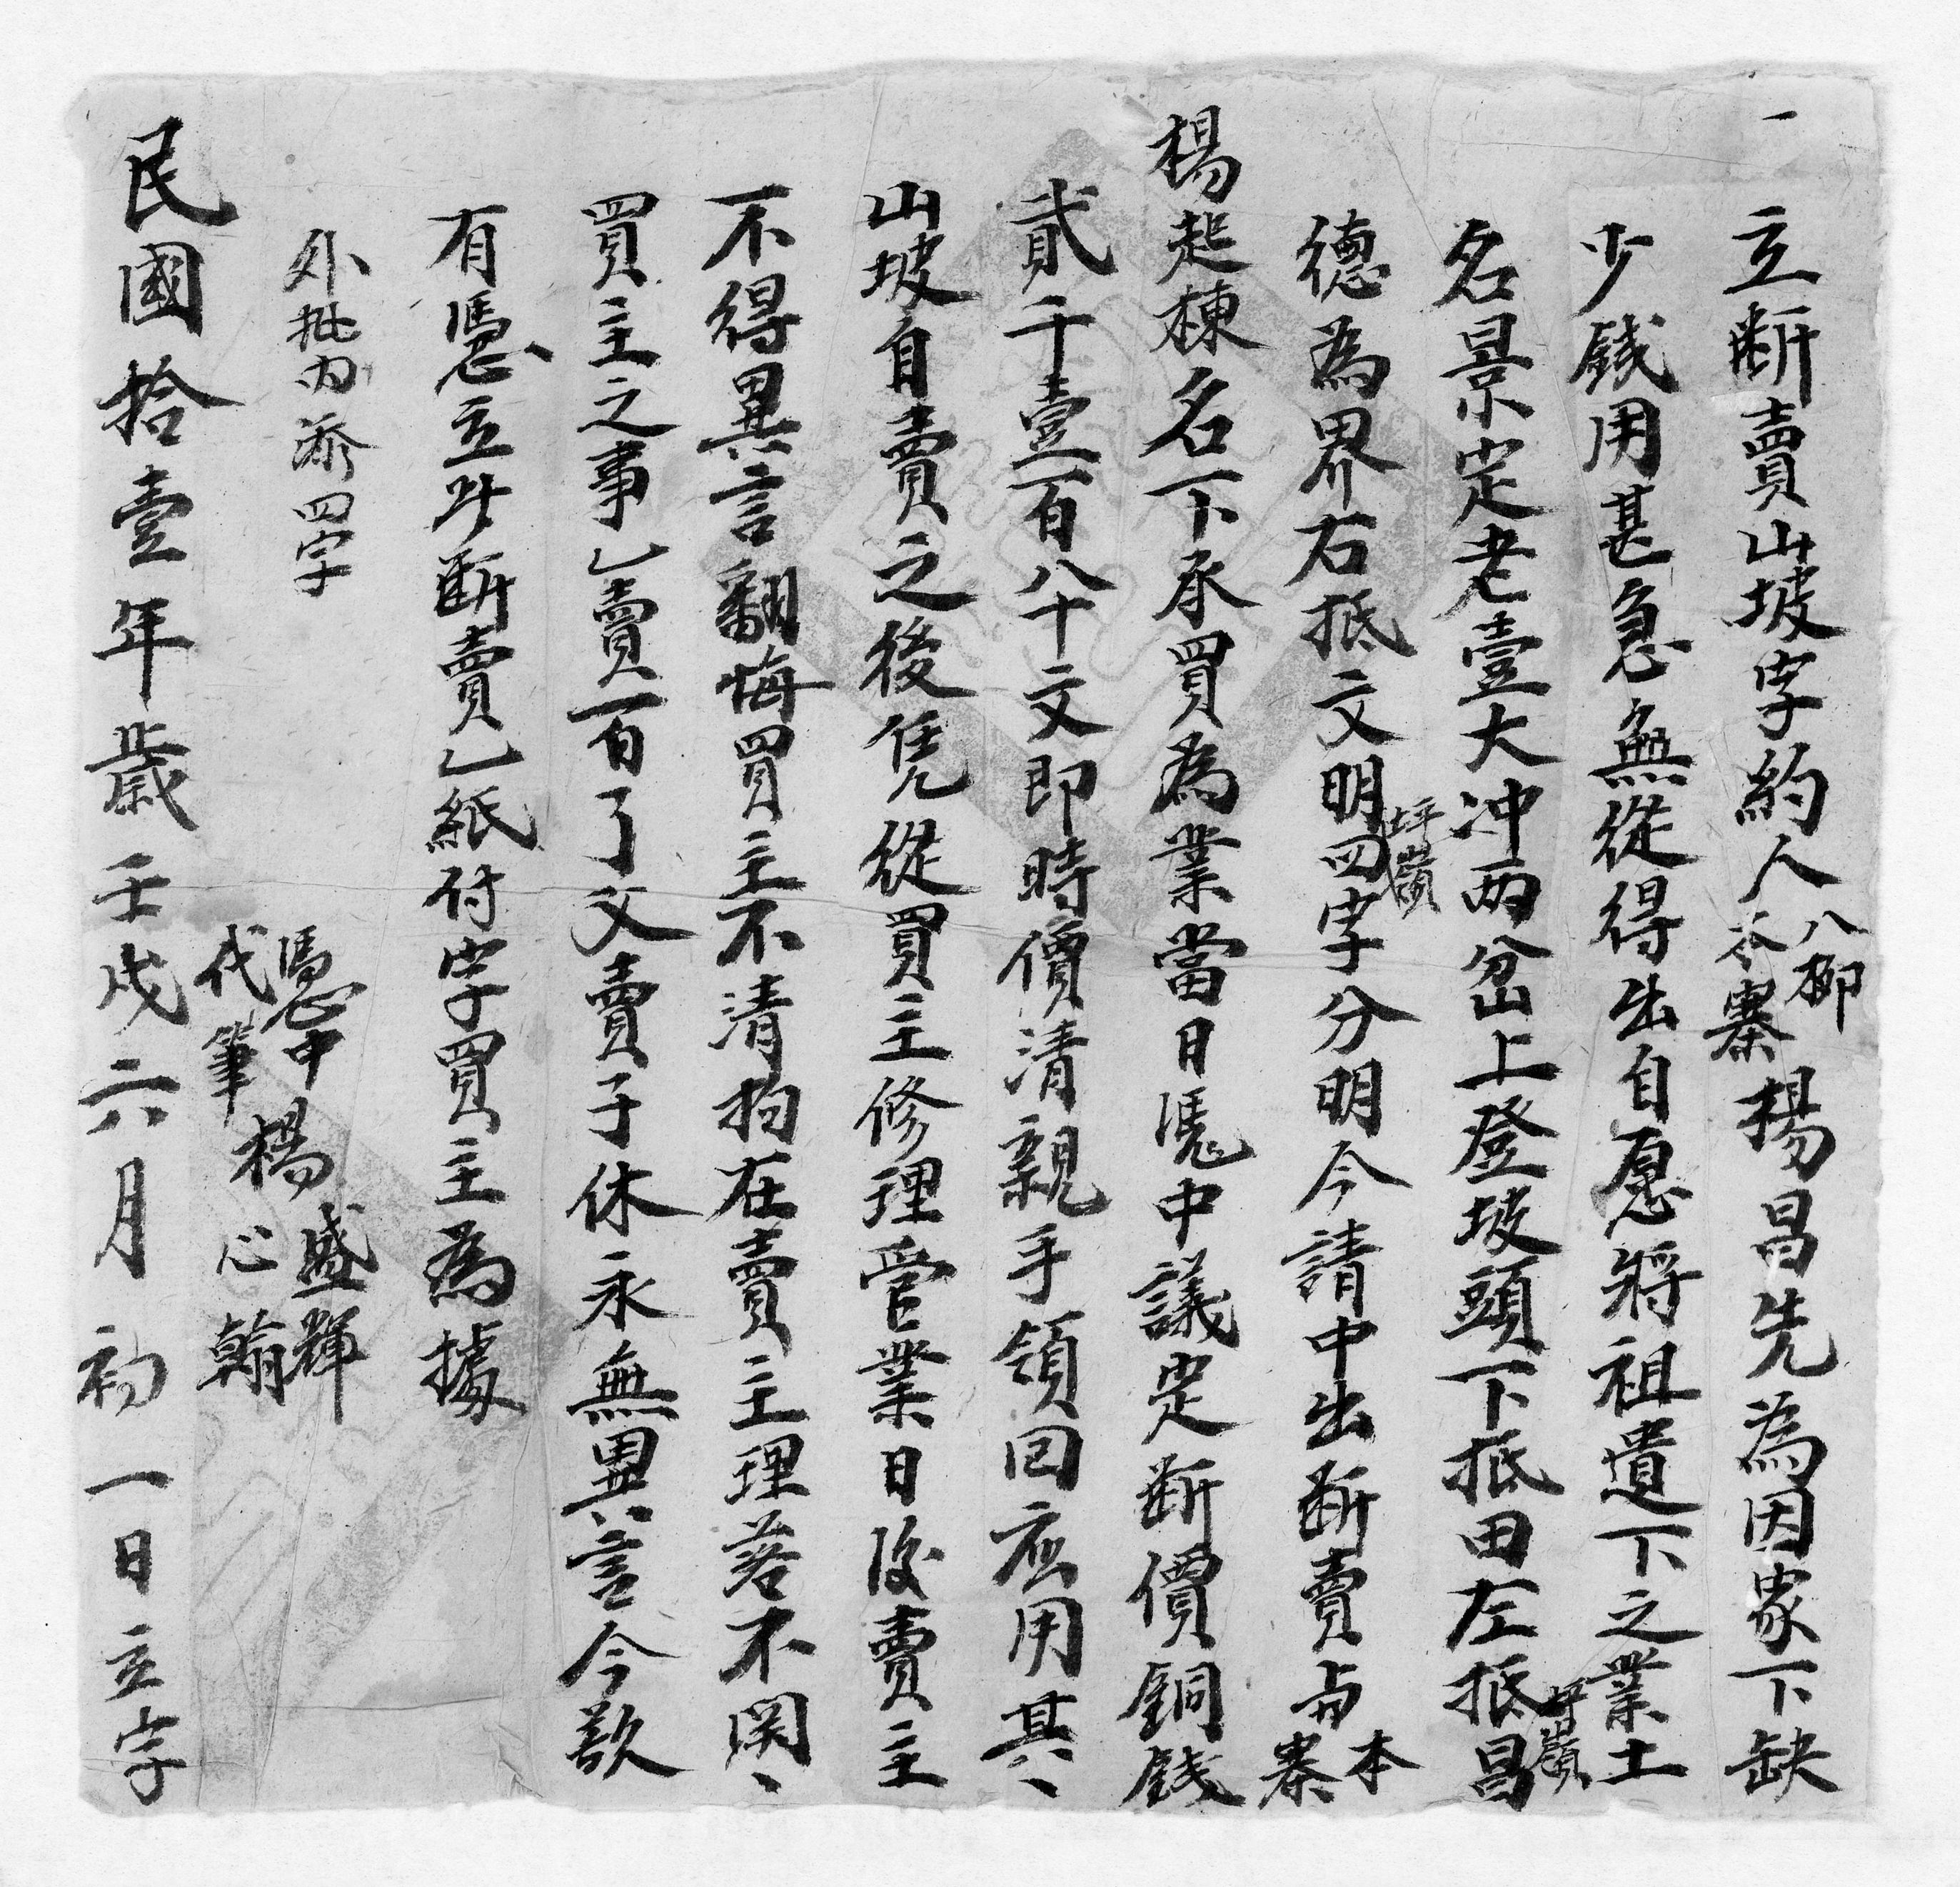 一立断賣山坡字約人八柳本寨楊昌先為因家下缺
少錢用甚急無從得出自愿將祖遺下之業土
名景定老壹大冲两岔上登坡頭下抵田左抵坪嶺昌
德為界右抵文明坪嶺四字分明今請中出断賣与本寨
楊起棟名下承買為業當日凴中議定断價銅錢
貳千壹百八十文即時價清親手領囬應用其〻
山坡自賣之後凭從買主修理管業日後賣主
不得異言翻悔買主不清拘在賣主理落不関〻
買主之事乚賣一百了父賣子休永無異言今欲
有憑立此断賣乚紙付字買主為據
外批内添四字
憑中楊盛輝
代筆楊心翰
民國拾壹年歲壬戌六月初一日立字